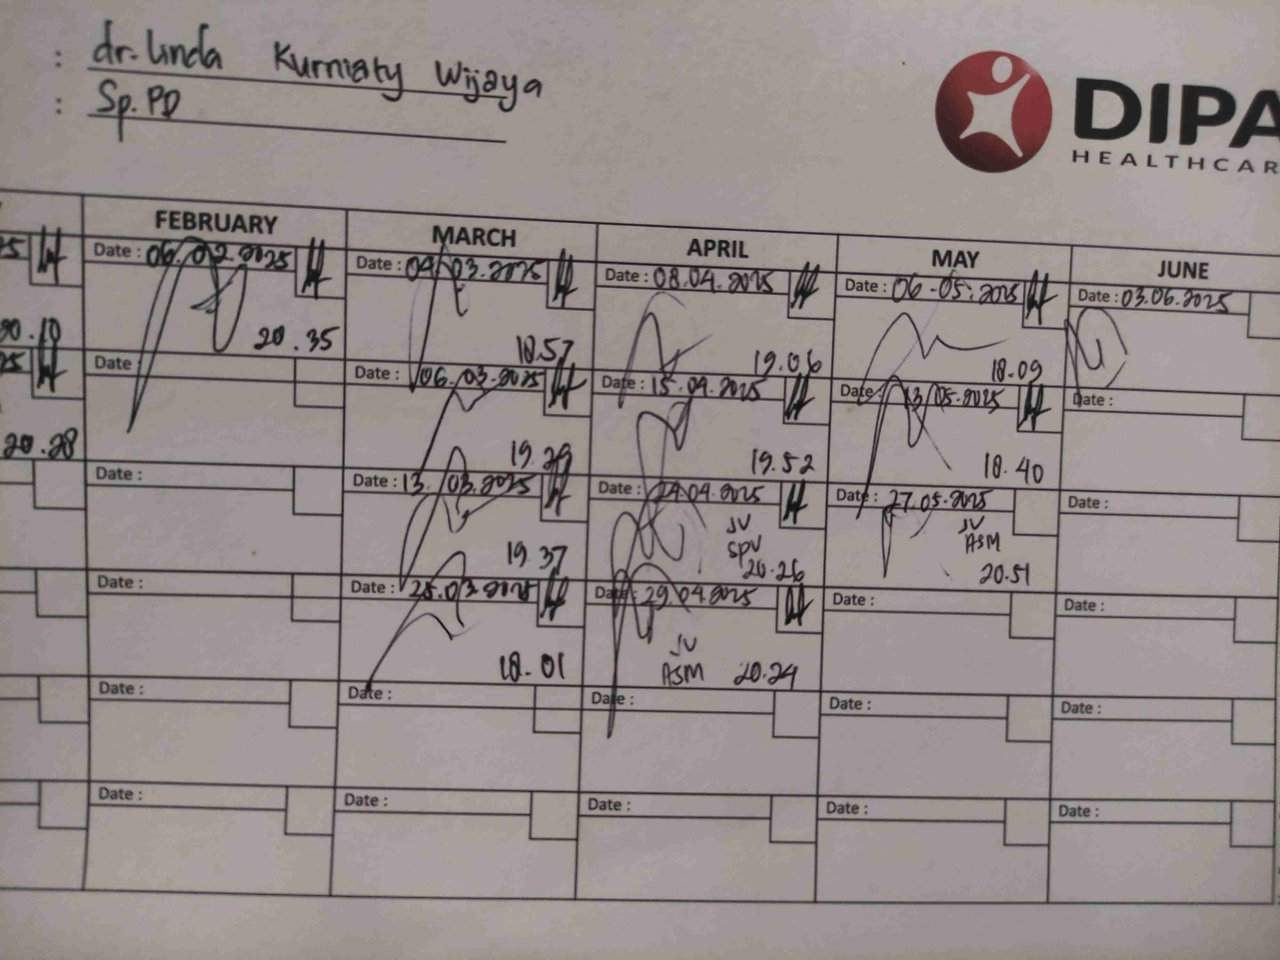 : dr. Linda Kurniaty Wijaya
: Sp.PD
DIPA
HEALTHCAR
FEBRUARY
MARCH
APRIL
MAY
JUNE
Date : 06.02.2025
20.35
Date :
Date :
Date :
Date :
Date :
Date : 04.03.2025
18.57
Date : 06.03.2025
19.29
Date : 13.03.2025
19.37
Date : 25.03.2025
18.01
Date :
Date :
Date : 08.04.2025
19.06
Date : 15.04.2025
19.52
Date : 24.04.2025
JV
SPV
20.26
Date : 29.04.2025
JV
ASM 20.24
Date :
Date :
Date : 06-05.2025
18.09
Date : 13/05.2025
18.40
Date : 27.05.2025
JV
ASM
20.51
Date :
Date :
Date :
Date : 03.06.2025
Date :
Date :
Date :
Date :
Date :
20.28